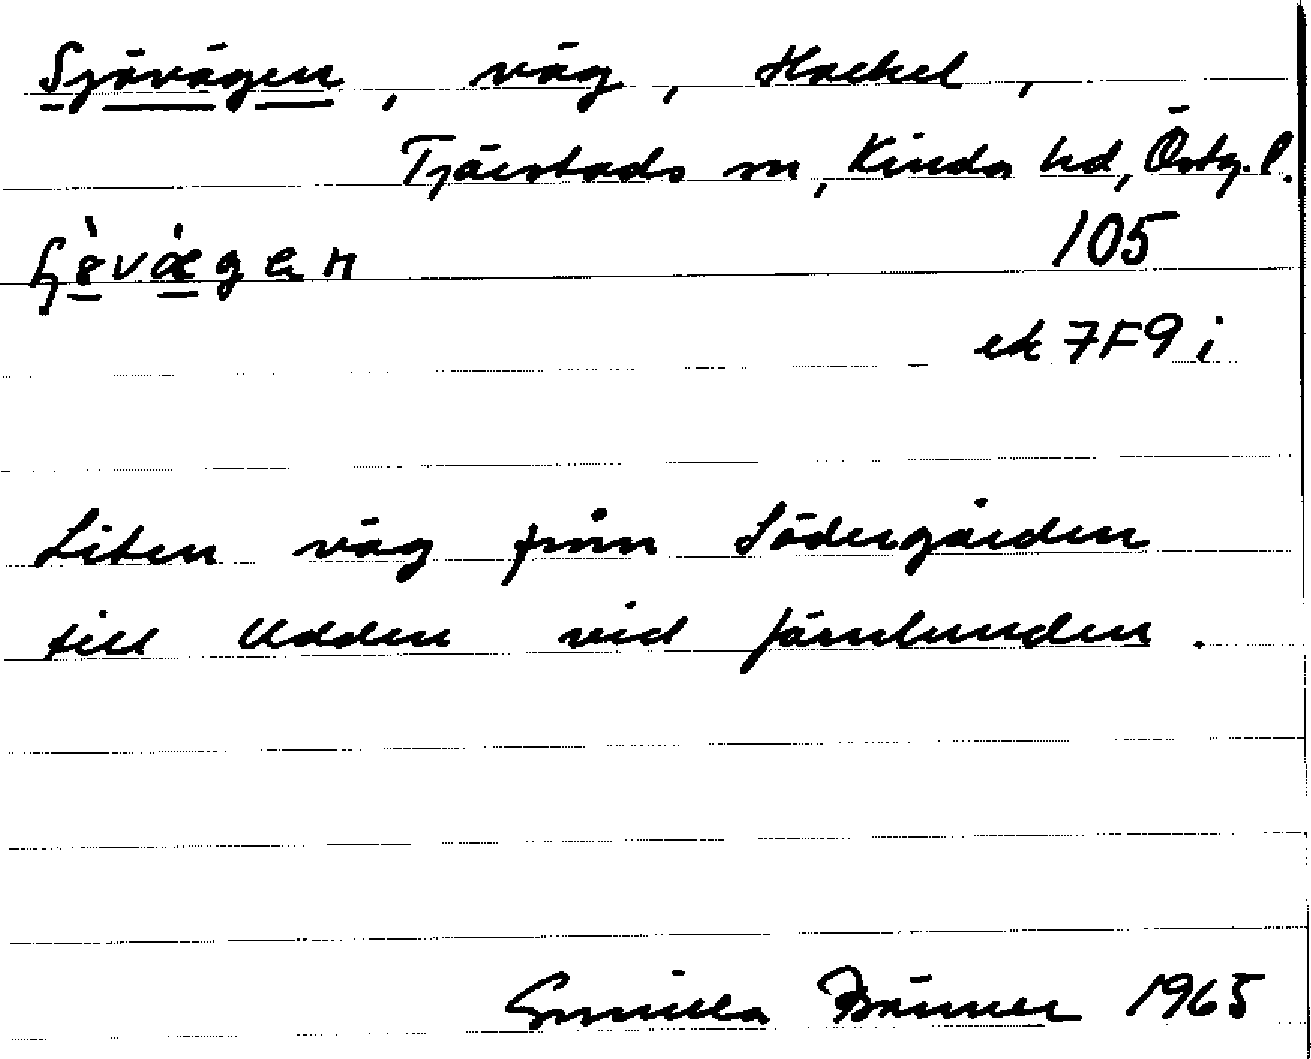 Sjövägen, väg, Hackel,
Tjärstads sn, Kinda hd, Östg. l.
105
ek 7F9i
Liten väg från Södergården
till Udden vid Järnlunden.
Gunilla 1965